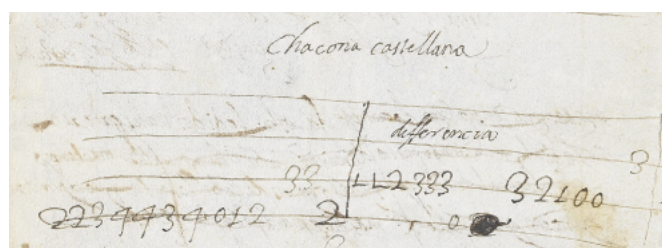 Chacona castellana
differencia
3
33 112333 32100
2234434012 2 0